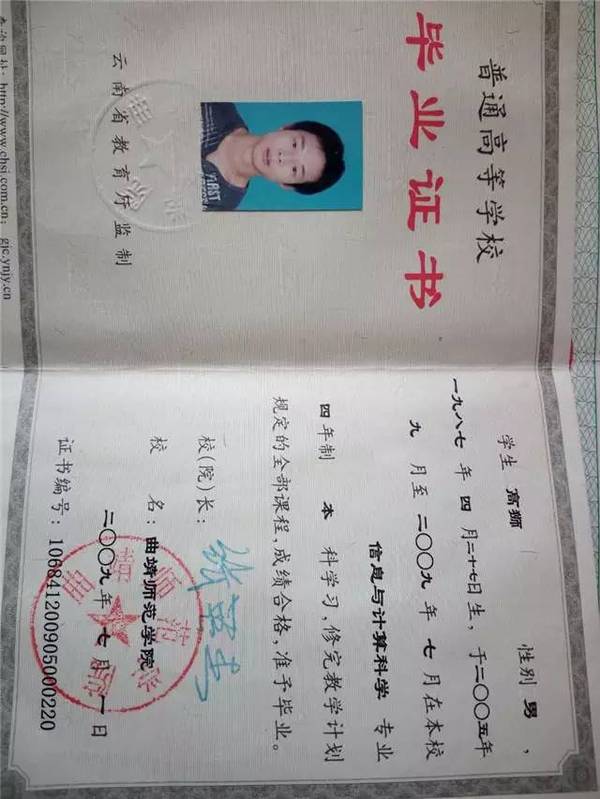 普通高等学校
毕业证书
YiRST
云南省教育厅监制
查询网址：http://www.chsi.com.cn；gjc.ynjy.cn
学生 高狮 性别 男，
一九八七年四月二十七日生，于二〇〇五年
九月至二〇〇九年七月在本校
信息与计算科学 专业
四年制 本 科学习，修完教学计划
规定的全部课程，成绩合格，准予毕业。
校(院)长：
校 名：曲靖师范学院
二〇〇九年七月一日
证书编号：106841200905000220